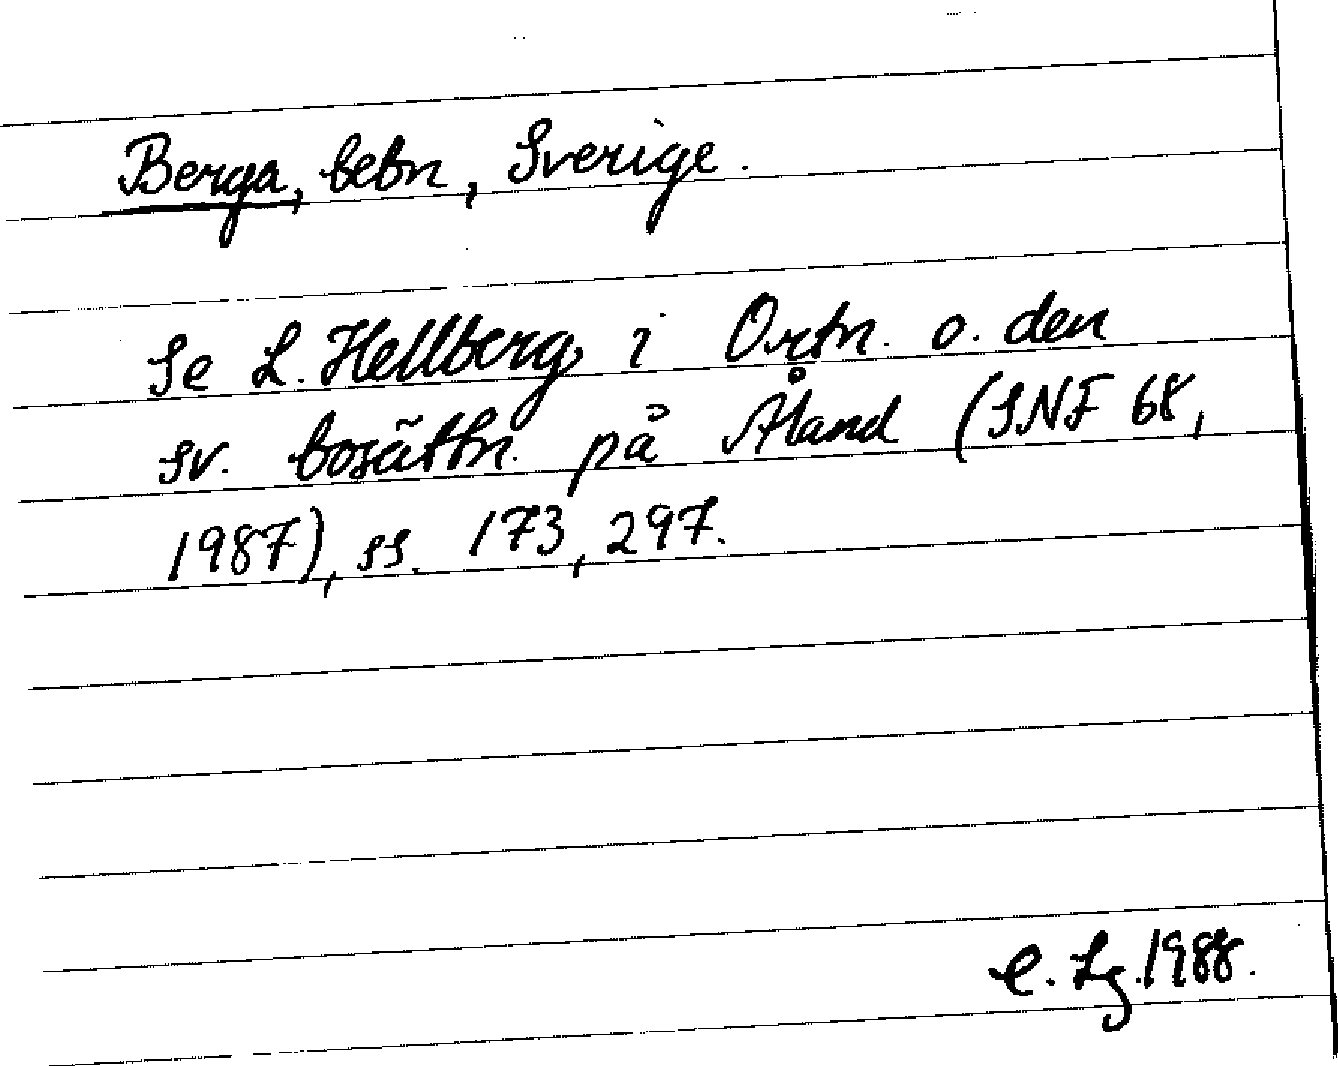 Berga, bebn, Sverige.
Se L. Hellberg i Ortn. o. den
sv. bosättn. på Åland (SNF 68,
1987), ss. 173, 297.
C. Lg. 1988.